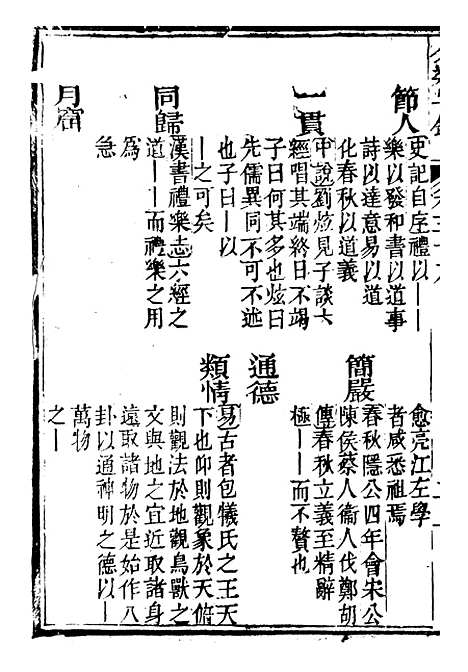 節人
史記自序禮以——
樂以發和書以道事
詩以達意易以道
化春秋以道義
一貫
中說劉炫見子談六
經唱其端終日不竭
子曰何其多也炫曰
先儒異同不可不述
也子曰—以
—之可矣
同歸
漢書禮樂志六經之
道——而禮樂之用
為
急
月窟
愈亮江左學
者咸悉祖焉
簡嚴
春秋隱公四年會宋公
陳侯蔡人衞人伐鄭胡
傳春秋立義至精辭
極——而不贅也
通德
類情
易古者包犧氏之王天
下也仰則觀象於天俯
則觀法於地觀鳥獸之
文與地之宜近取諸身
遠取諸物於是始作八
卦以通神明之德以—
萬物
之—